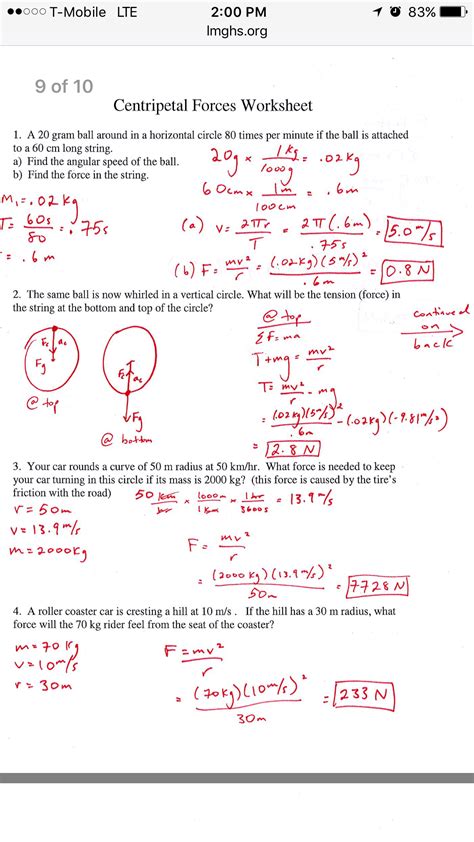 T-Mobile LTE 2:00 PM 83%
lmghs.org
9 of 10
Centripetal Forces Worksheet
1. A 20 gram ball around in a horizontal circle 80 times per minute if the ball is attached
to a 60 cm long string.
a) Find the angular speed of the ball.
b) Find the force in the string.
20g × 1kg/1000g = .02kg
60cm × 1m/100cm = .6m
M₁ = .02 kg
T = 60s/80 = .75s
= .6 m
(a) v = 2πr/T = 2π(.6m)/.75s = 5.0 m/s
(b) F = mv²/r = (.02kg)(5m/s)²/.6m = 0.8 N
2. The same ball is now whirled in a vertical circle. What will be the tension (force) in
the string at the bottom and top of the circle?
continued
on
back
@ top
ΣF = ma
T + mg = mv²/r
T = mv²/r - mg
= (.02kg)(5m/s)²/.6m - (.02kg)(-9.81m/s²)
= 2.8 N
Fc ac
Fg
@ top
ac
Fg
@ bottom
3. Your car rounds a curve of 50 m radius at 50 km/hr. What force is needed to keep
your car turning in this circle if its mass is 2000 kg? (this force is caused by the tire's
friction with the road)
50 km/hr × 1000m/1km × 1hr/3600s = 13.9 m/s
r = 50m
v = 13.9 m/s
m = 2000kg
F = mv²/r
= (2000kg)(13.9m/s)²/50m = 7728 N
4. A roller coaster car is cresting a hill at 10 m/s . If the hill has a 30 m radius, what
force will the 70 kg rider feel from the seat of the coaster?
m = 70 kg
v = 10m/s
r = 30m
F = mv²/r
= (70kg)(10m/s)²/30m = 233 N